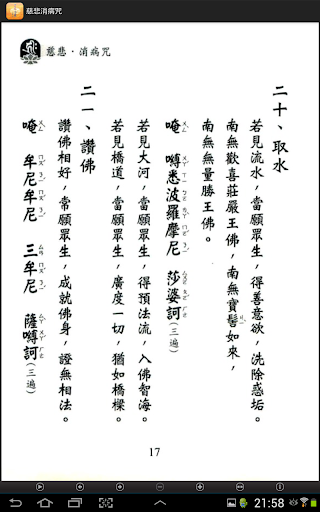 慈悲消病咒
慈悲·消病咒
二十、取水
若見流水，當願眾生，得善意欲，洗除惑垢。
南無歡喜莊嚴王佛，南無寶髻如來，
南無無量勝王佛。
唵　嚩悉波羅摩尼　莎婆訶(三遍)
若見大河，當願眾生，得預法流，入佛智海。
若見橋道，當願眾生，廣度一切，猶如橋樑。
二一、讚佛
讚佛相好，常願眾生，成就佛身，證無相法。
唵　牟尼牟尼　三牟尼　薩嚩訶(三遍)
17
21:58